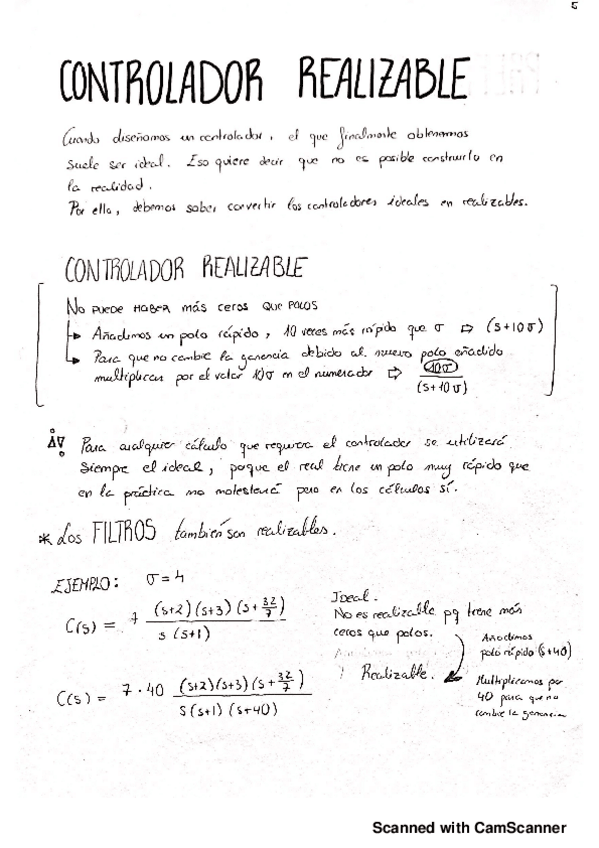 5
CONTROLADOR REALIZABLE
Cuando diseñamos un controlador, el que finalmente obtenemos
suele ser ideal. Eso quiere decir que no es posible construirlo en
la realidad.
Por ello, debemos saber convertir los controladores ideales en realizables.
CONTROLADOR REALIZABLE
NO PUEDE HABER más ceros que POLOS
↳ Añadimos un polo rápido, 10 veces más rápido que σ ⇒ (s+10σ)
↳ Para que no cambie la ganancia debido al nuevo polo añadido
multiplicar por el valor 10σ en el numerador ⇒ 10σ/(s+10σ)
Para cualquier cálculo que requiera el controlador se utilizará
siempre el ideal, porque el real tiene un polo muy rápido que
en la práctica no molestará pero en los cálculos sí.
* Los FILTROS también son realizables.
EJEMPLO: σ=4
C(s) = 7 (s+2)(s+3)(s+32/7) / s(s+1)
Ideal.
No es realizable pq tiene más
ceros que polos.
Añadimos
polo rápido (s+40)
C(s) = 7·40 (s+2)(s+3)(s+32/7) / s(s+1)(s+40)
Realizable.
Multiplicamos por
40 para que no
cambie la ganancia
Scanned with CamScanner